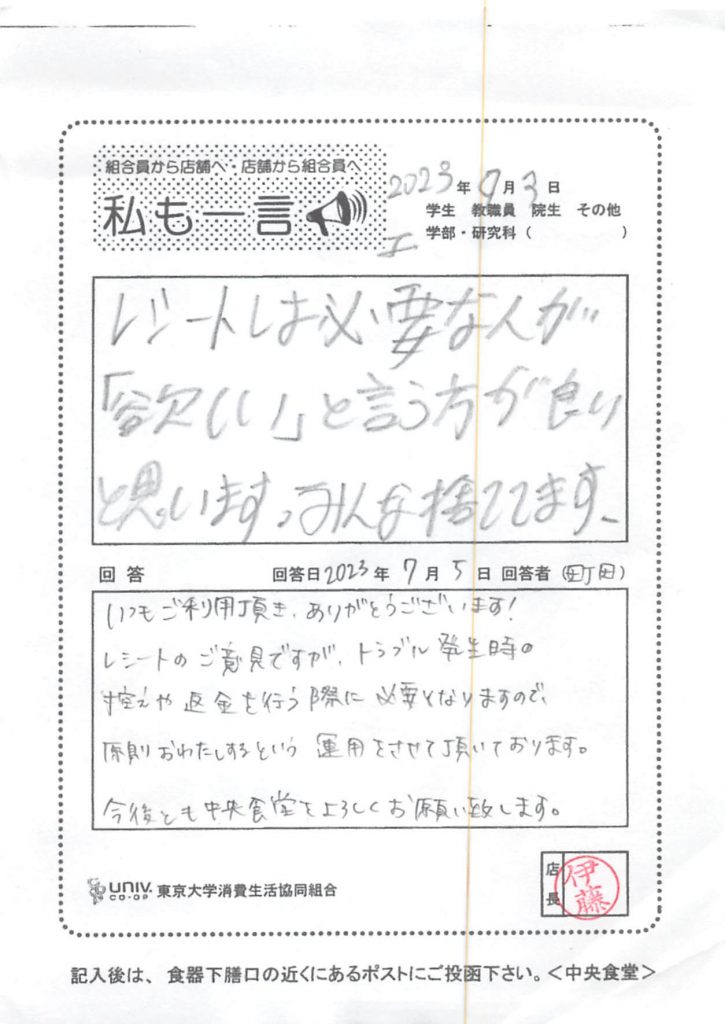 組合員から店舗へ・店舗から組合員へ
私も一言
2023年7月3日
学生 教職員 院生 その他
学部・研究科( )
工
レシートは必要な人が
「欲しい」と言う方が良い
と思います。みんな捨ててます、
回答 回答日2023年7月5日 回答者(町田)
いつもご利用頂き、ありがとうございます!
レシートのご意見ですが、トラブル発生時の
控えや返金を行う際に必要となりますので、
原則おわたしするという運用をさせて頂いております。
今後とも中央食堂をよろしくお願い致します。
UNIV. CO-OP 東京大学消費生活協同組合
店長 伊藤
記入後は、食器下膳口の近くにあるポストにご投函下さい。<中央食堂>